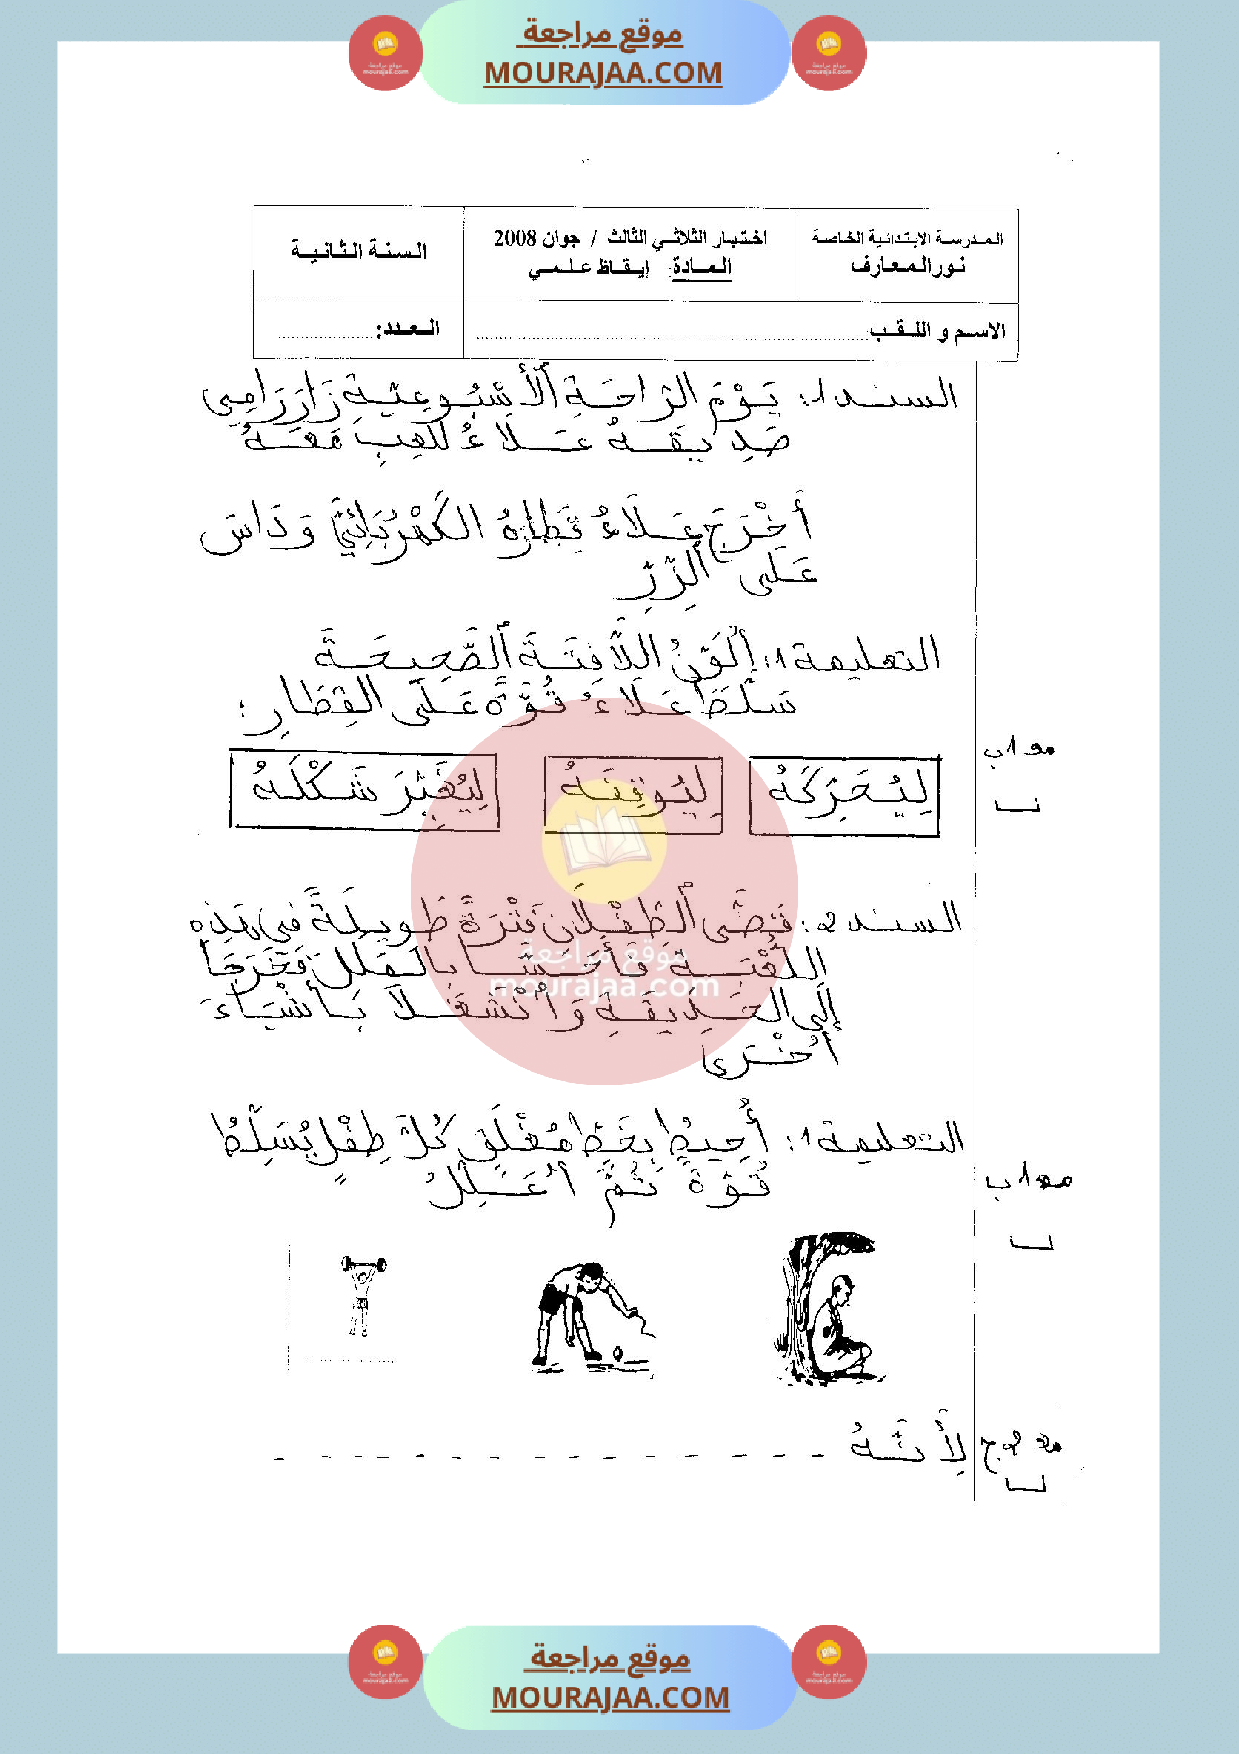 موقع مراجعة
MOURAJAA.COM
المدرسة الابتدائية الخاصة
نور المعارف
اختبار الثلاثي الثالث / جوان 2008
المادة: إيقاظ علمي
السنة الثانية
الاسم و اللقب:
العدد:
السند 1: يَوْمَ الرَّاحَةِ الْأُسْبُوعِيَّةِ زَارَ رَامِي
صَدِيقَهُ عَلَاءُ لِلَّعِبِ مَعَهُ
أَخْرَجَ عَلَاءُ قِطَارَهُ الكَهْرُبَائِيَّ وَ دَاسَ
عَلَى الزِّرِّ
التعليمة 1: أُلَوِّنُ اللَّافِتَةَ الصَّحِيحَةَ
سَلَّطَ عَلَاءُ قُوَّةً عَلَى القِطَارِ:
لِيُحَرِّكَهُ
لِيُوقِفَهُ
لِيُغَيِّرَ شَكْلَهُ
مع 1 ب
السند 2: قَضَّى الطِّفْلَانِ فَتْرَةً طَوِيلَةً فِي هَذِهِ
اللُّعْبَةِ فَأَحَسَّا بِالمَلَلِ فَخَرَجَا
إِلَى الحَدِيقَةِ وَ انْشَغَلَا بِأَشْيَاءَ
أُخْرَى
موقع مراجعة
mourajaa.com
التعليمة 1: أُحِيطُ بِخَطٍّ مُغْلَقٍ كُلَّ طِفْلٍ يُسَلِّطُ
قُوَّةً ثُمَّ أُعَلِّلُ
مع 1 ب
لِأَنَّهُ
مع 2 ج
موقع مراجعة
MOURAJAA.COM